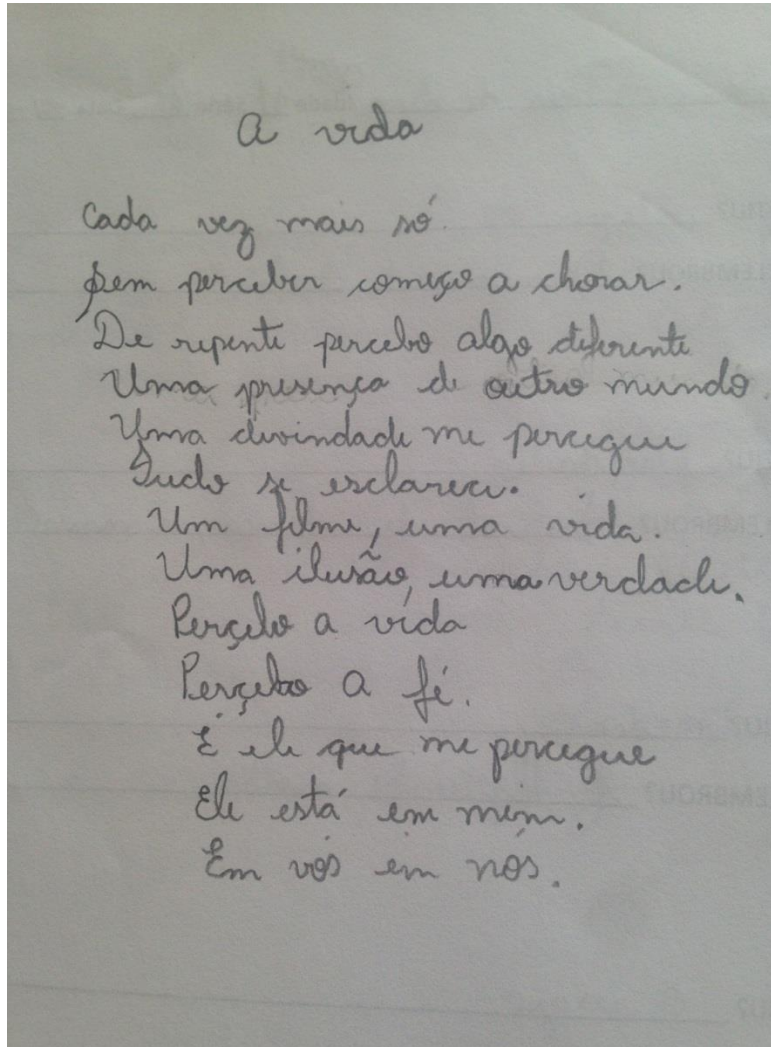 A vida
Cada vez mais só.
Sem perceber começo a chorar.
De repente percebo algo diferente
Uma presença de outro mundo.
Uma divindade me percegue
Tudo se esclareceu.
Um filme, uma vida.
Uma ilusão, uma verdade.
Perçebo a vida
Perçebo a fé.
É ele que me percegue
Ele está em mim.
Em vós em nós.